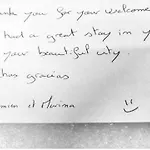 ank you for your welcome
had a great stay in y
your beautiful city.
chas gracias
et Marina